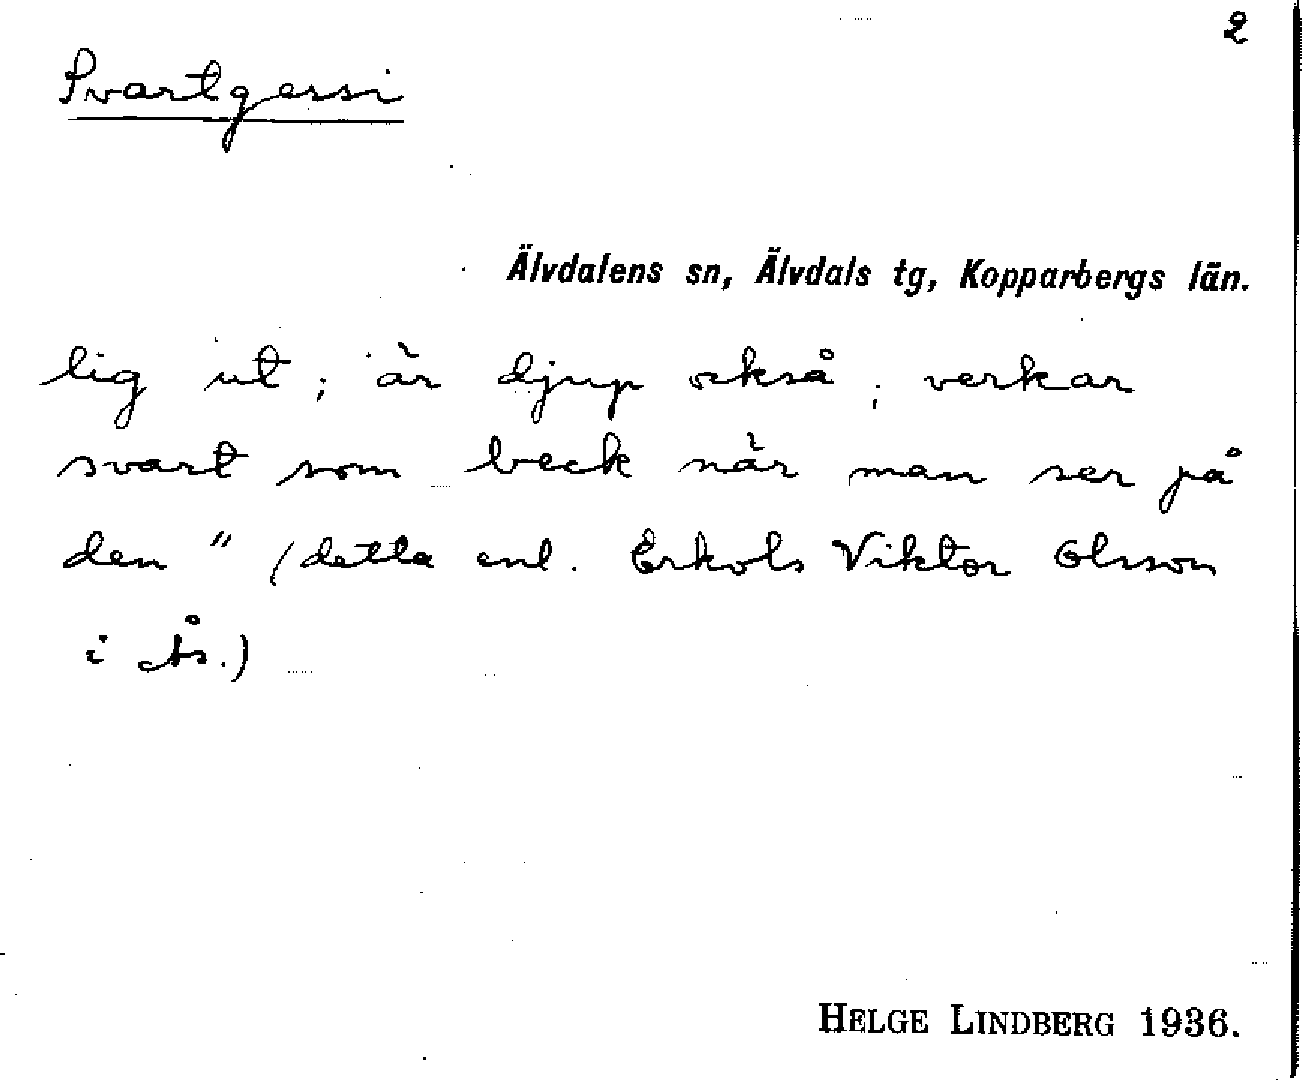 2
Svartgessi
Älvdalens sn, Älvdals tg, Kopparbergs län.
lig ut; är djup också; verkar
svart som beck när man ser på
den" (detta enl. Erkols Viktor Olsson
i Ås.)
HELGE LINDBERG 1936.